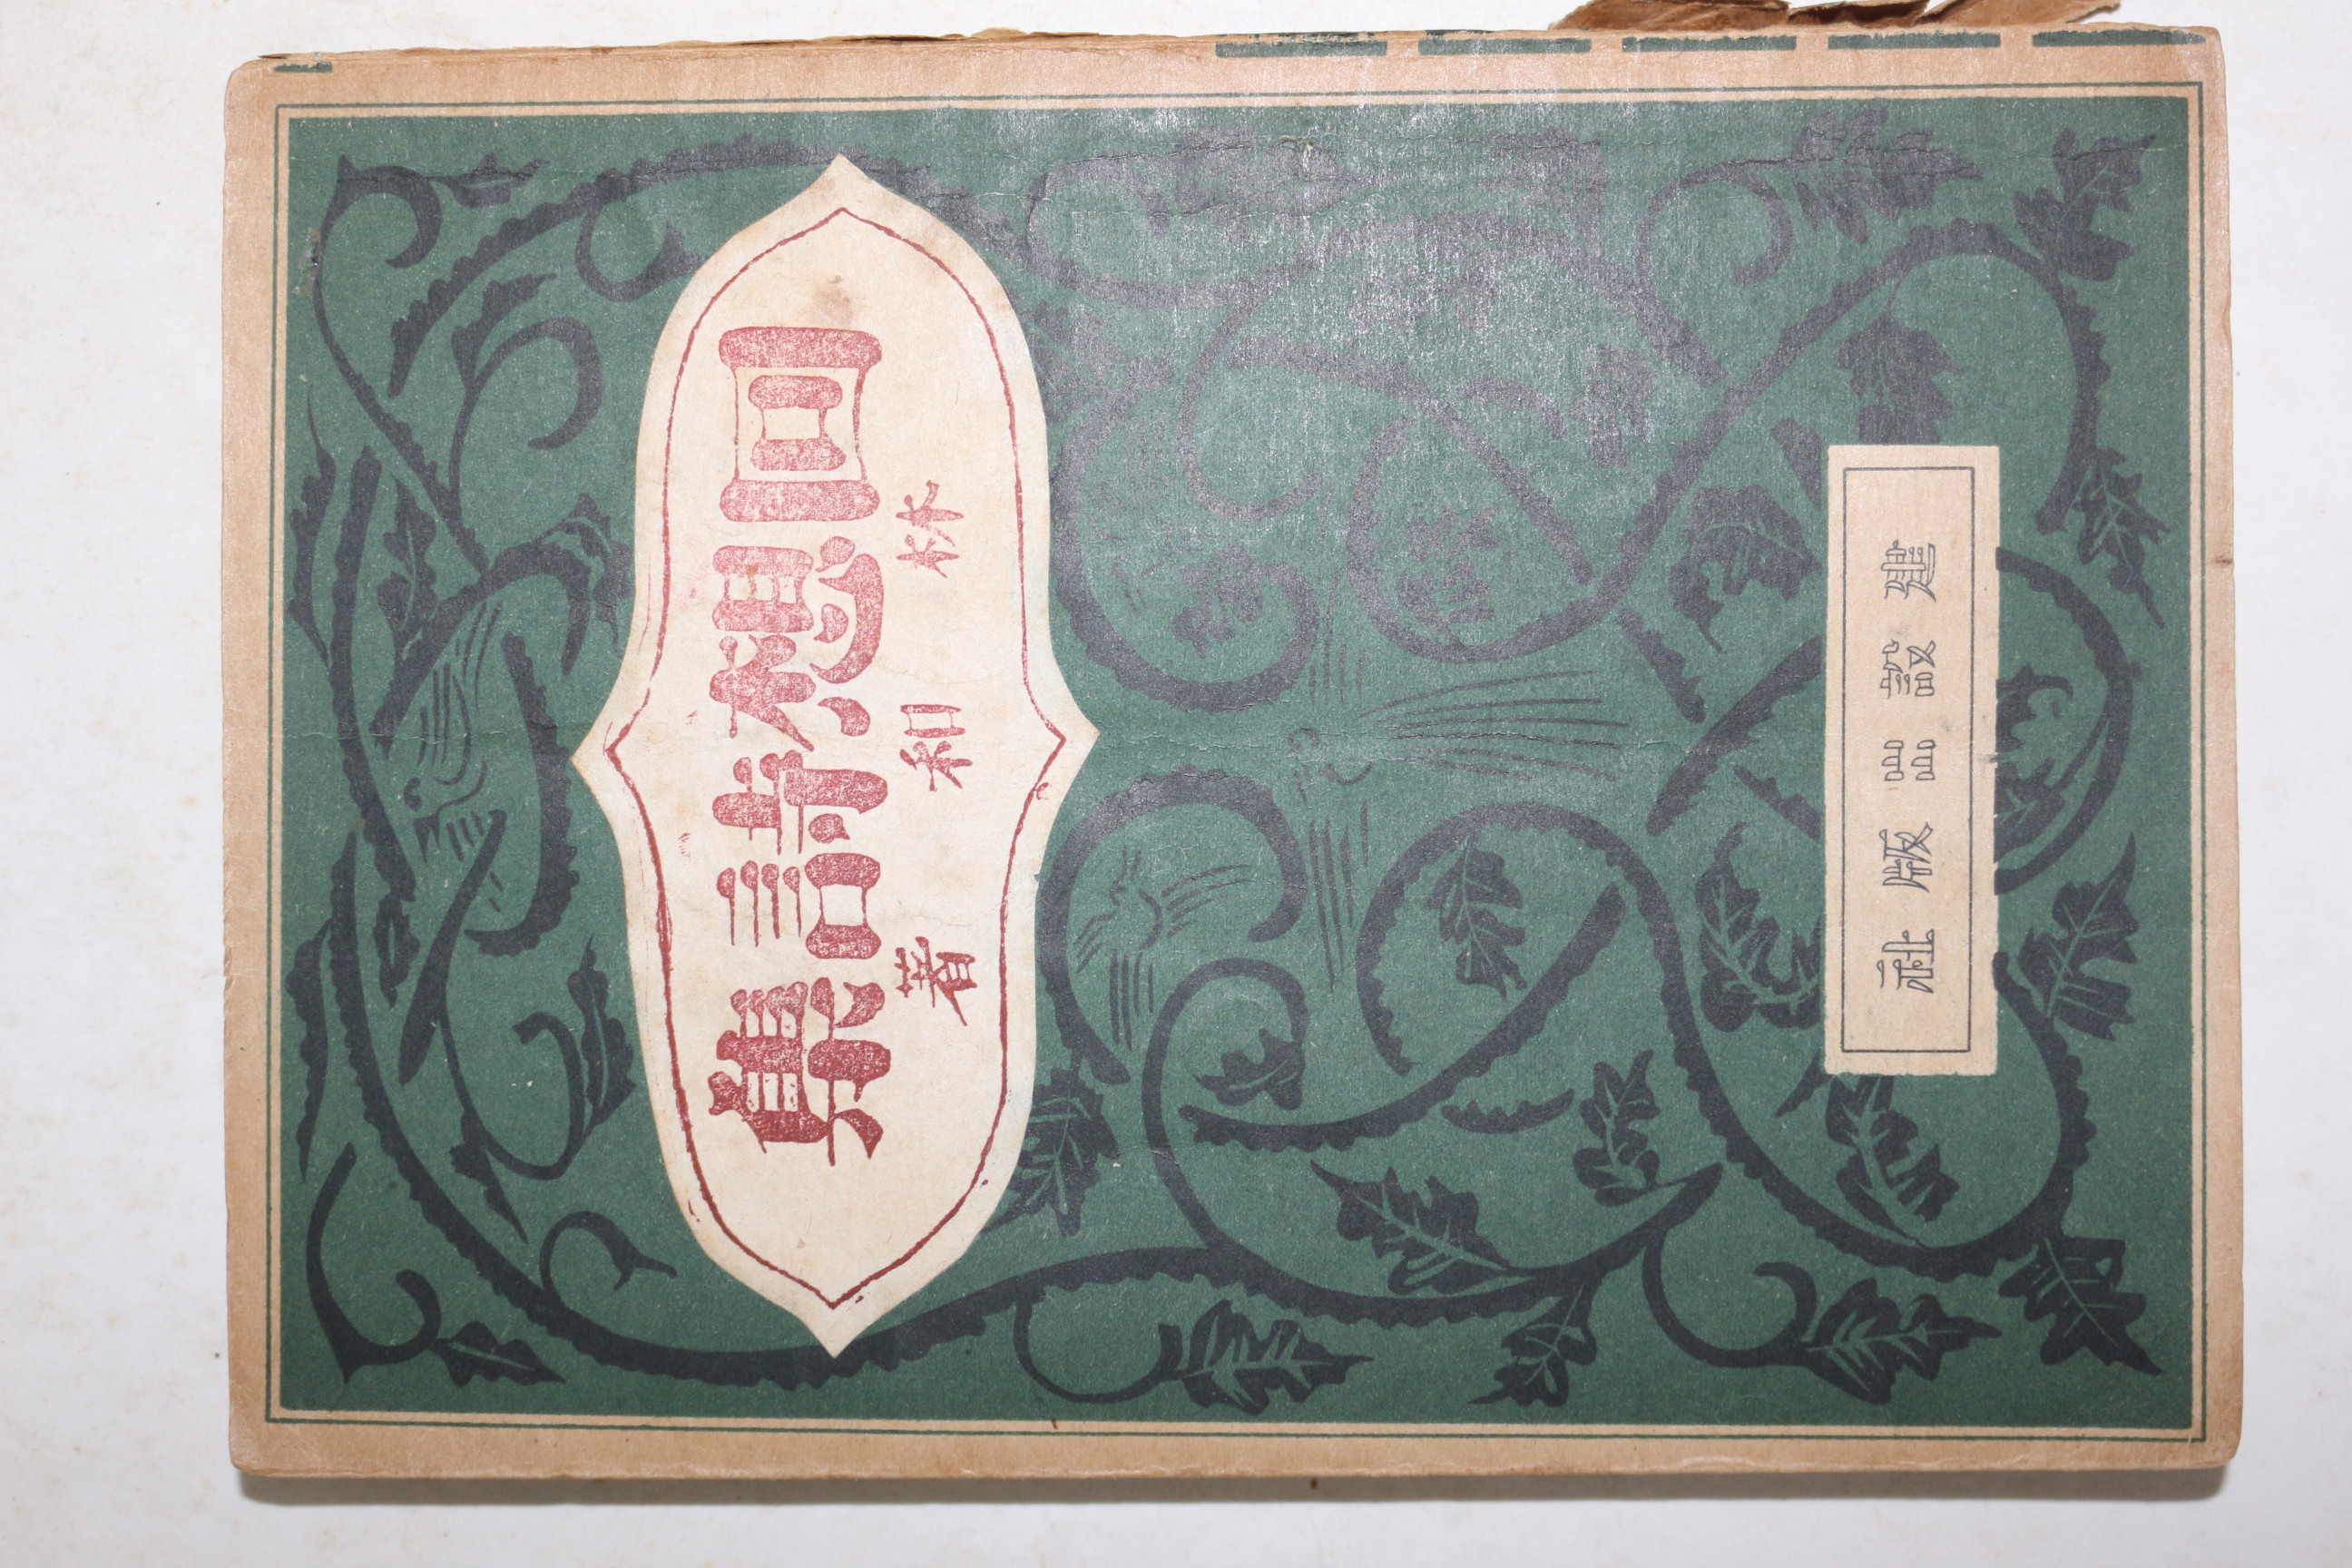 回想詩集
林和著
建設出版社